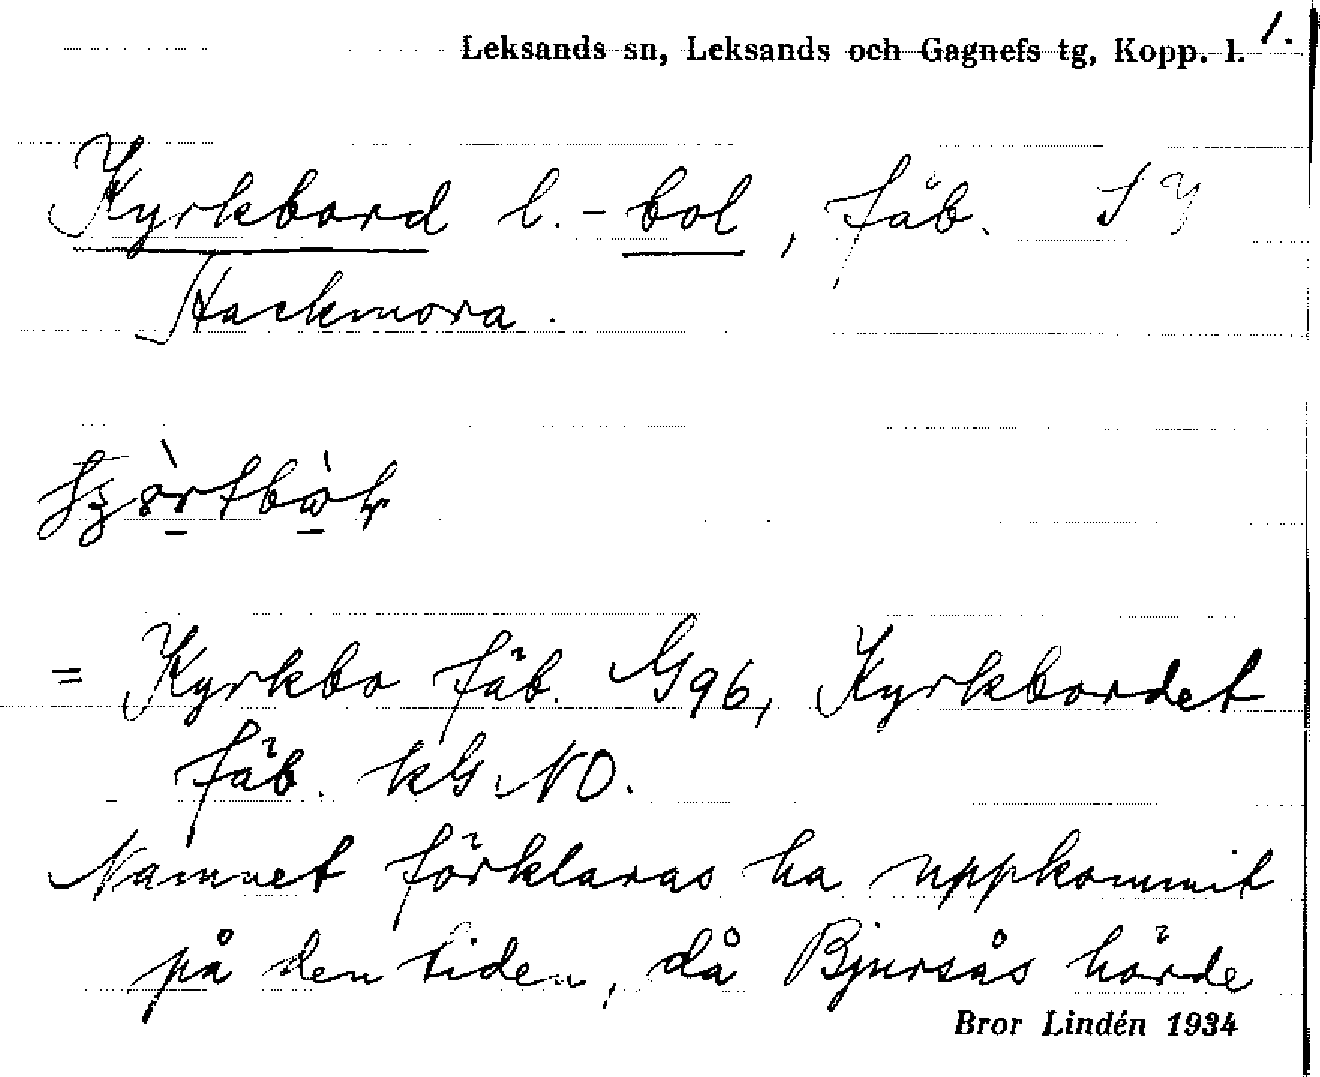 Leksands sn, Leksands och Gagnefs tg, Kopp. l. 1.
Kyrkbord l. -bol, fäb.
Hackmora.
= Kyrkbo fäb. G96, Kyrkbordet
fäb. kG NO.
Namnet förklaras ha uppkommit
på den tiden, då Bjursås hörde
Bror Lindén 1934